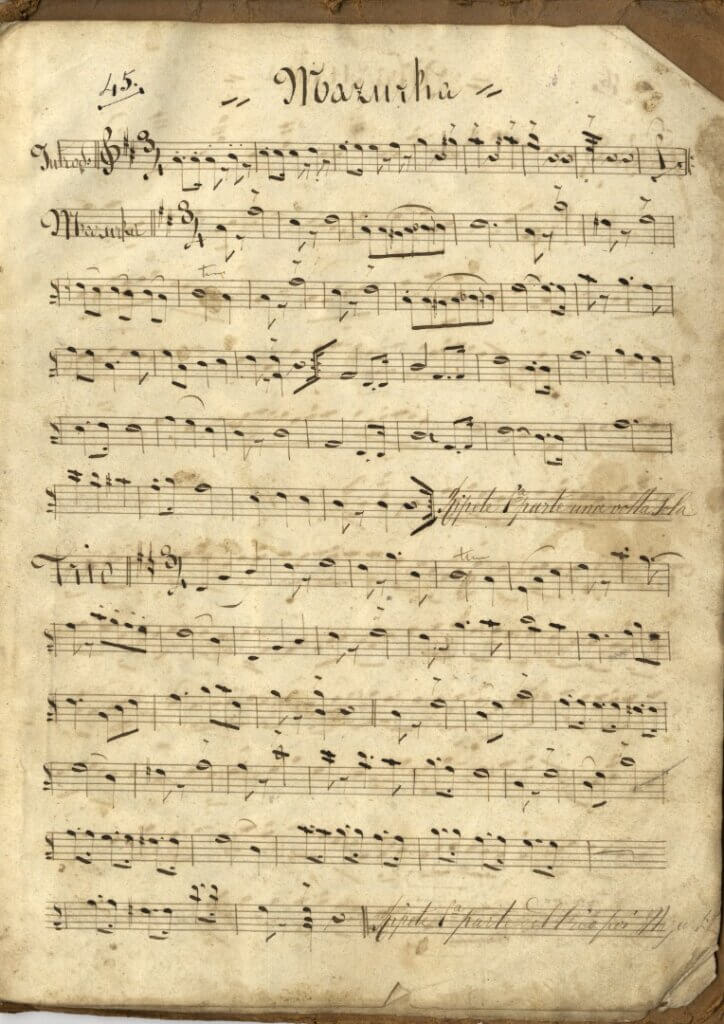 45.
= Mazurka =
Introd.
3/4
Mazurka 3/4
Ripete 1ª parte una volta sola
Trio 3/4
Ripete 1ª parte del trio poi